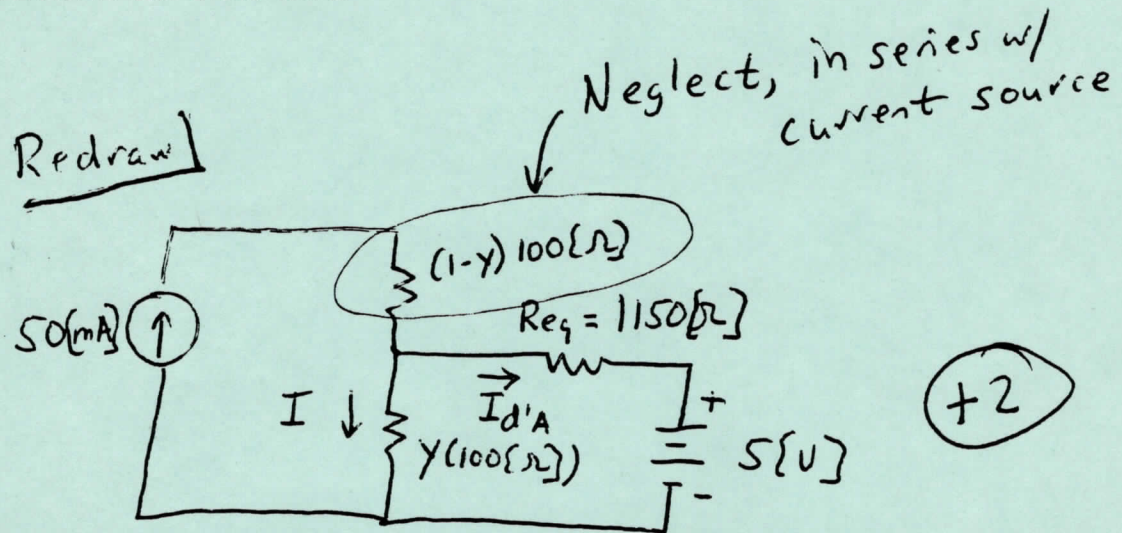 Neglect, in series w/
current source
Redraw
(1-y) 100[Ω]
Req = 1150[Ω]
50[mA]
I
Id'A
+
y(100[Ω])
5[V]
-
+2